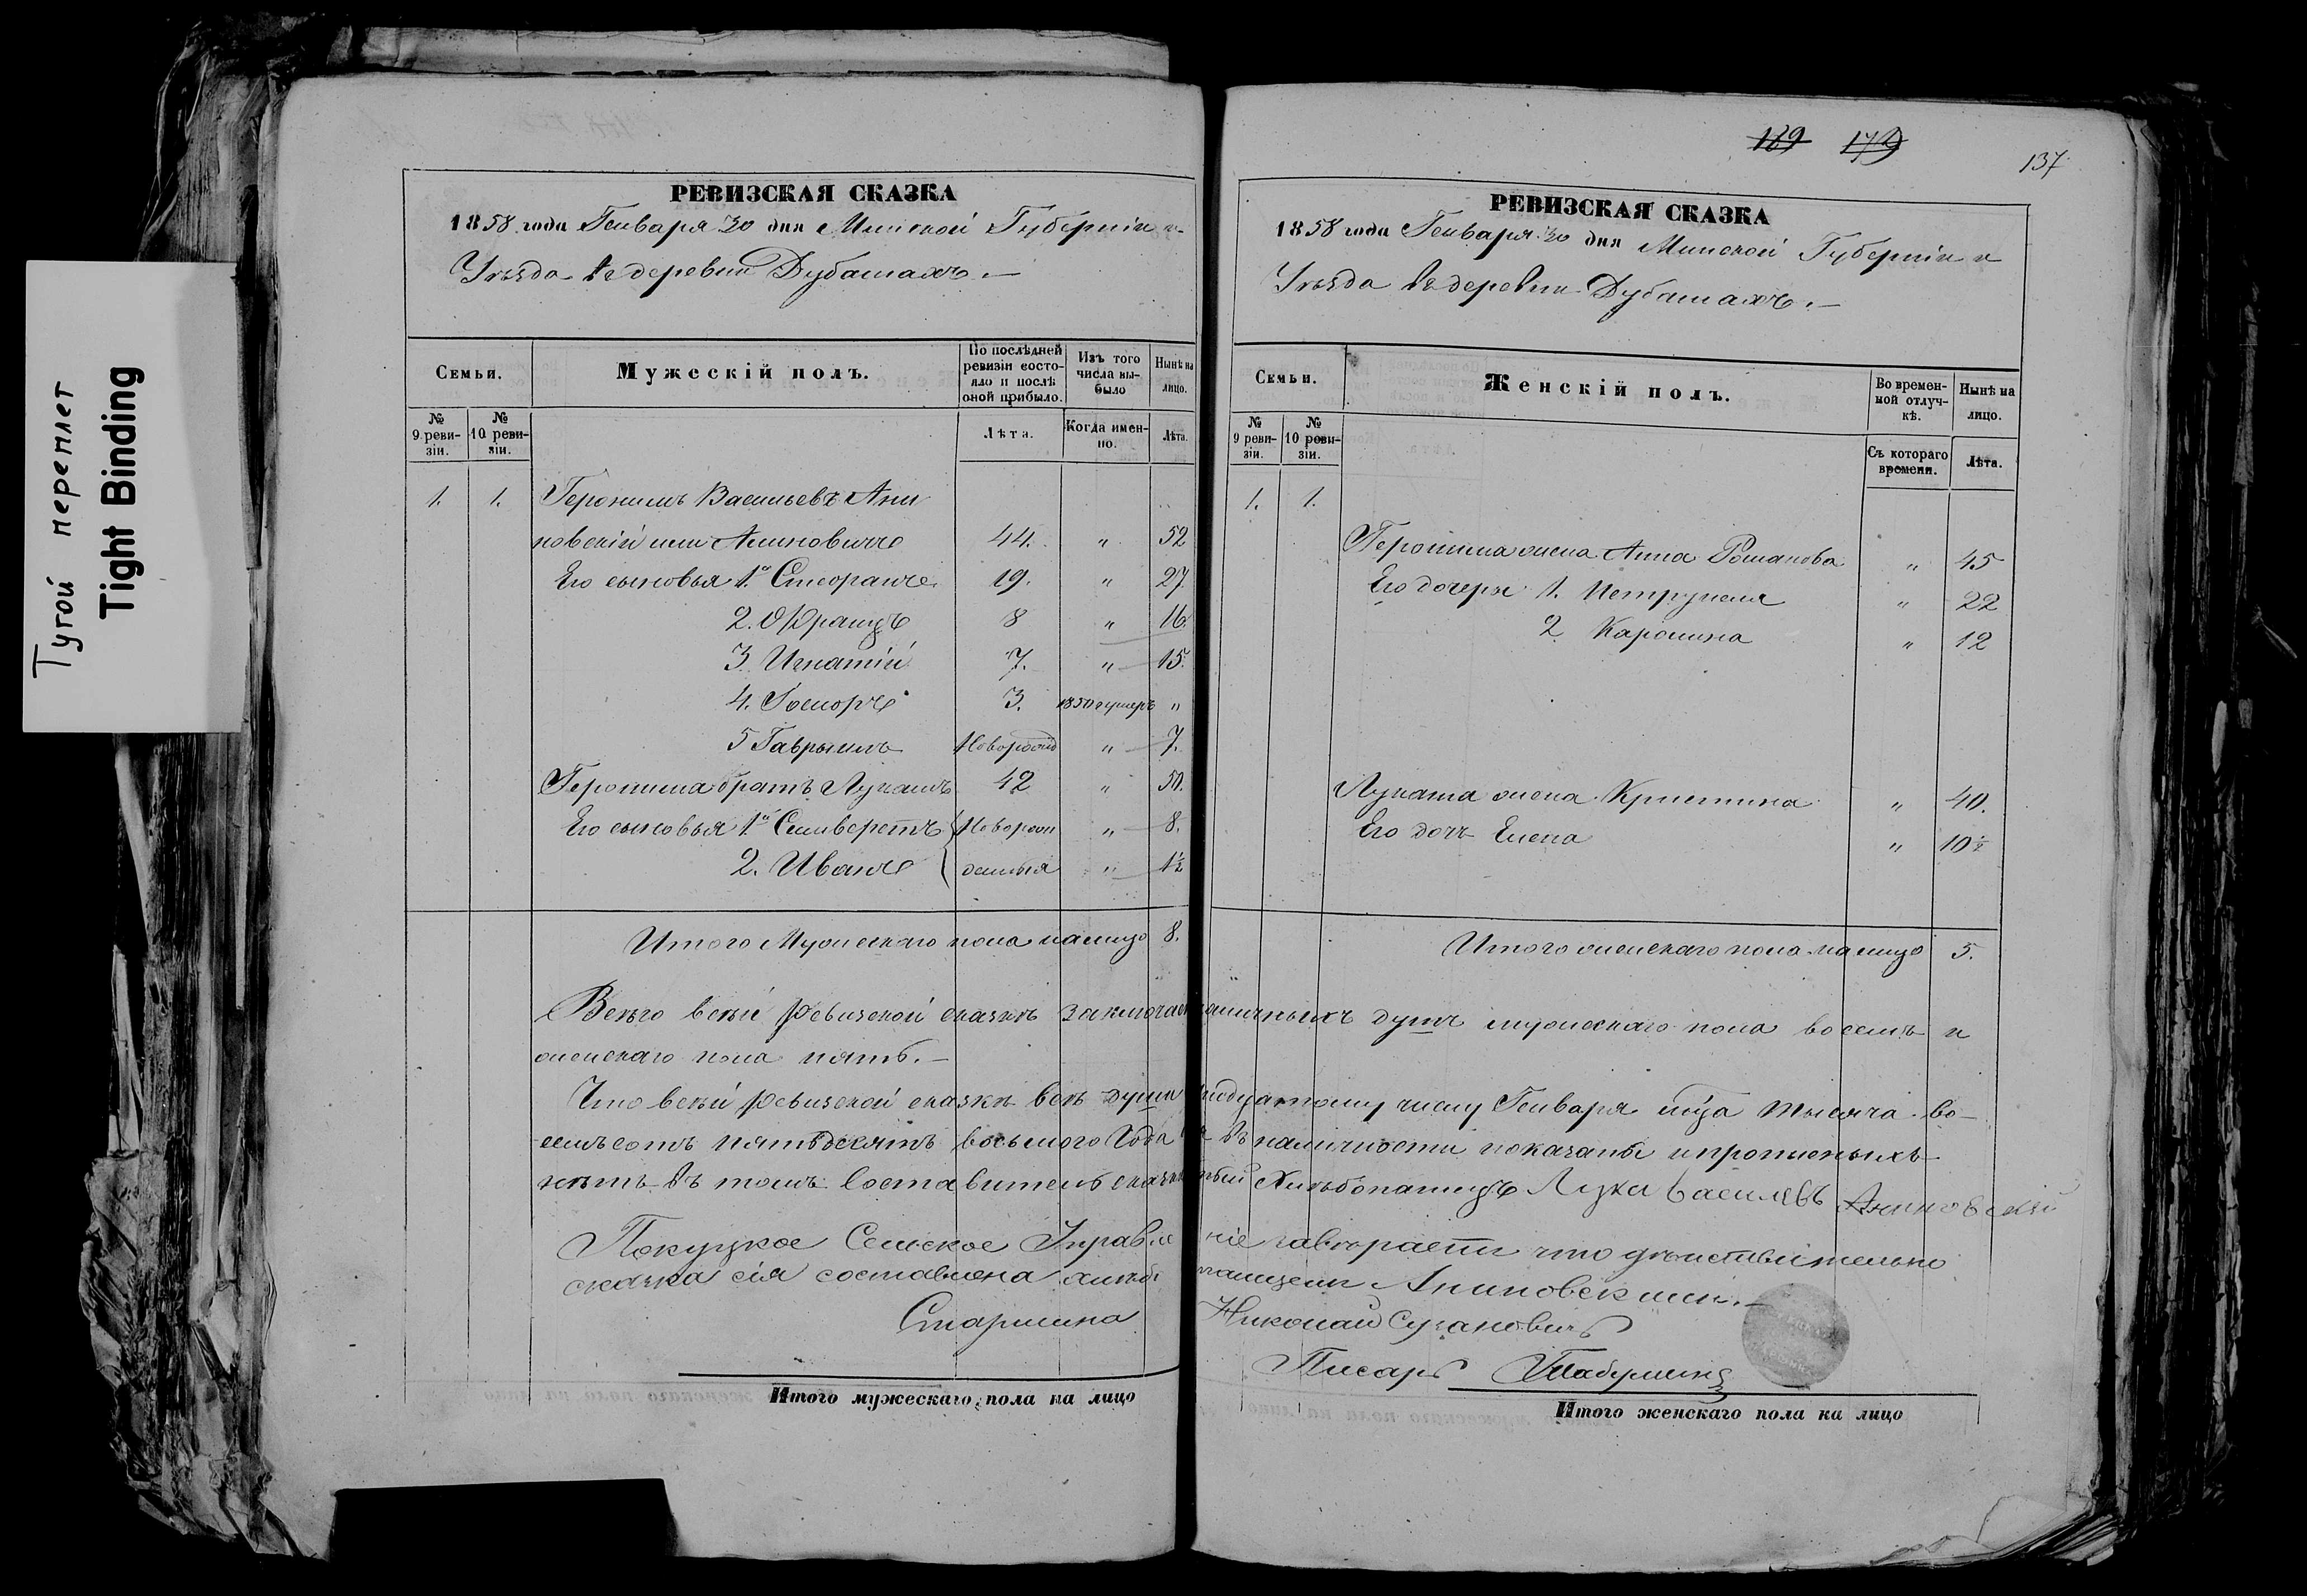 Тугой переплет
Tight Binding
РЕВИЗСКАЯ СКАЗКА
1858 года Генваря 30 дня Минской Губерніи и
Уѣзда въ деревни Дубашахъ.—
Семьи.
Мужескій полъ.
По послѣдней ревизіи состояло и послѣ оной прибыло.
Изъ того числа выбыло
Нынѣ на лицо.
№ 9 ревизіи.
№ 10 ревизіи.
Лѣта.
Когда именно.
Лѣта.
1. 1. Геронимъ Васильевъ Ани
новскій или Асиновичъ 44. " 52
Его сыновья 1й Стефанъ 19. " 27
2. Францъ 8 " 16.
3. Игнатій 7. " 15.
4. 3. 1850 умеръ "
5 Гаврыилъ Новорожд " 7.
Геронима братъ Лукашъ 42 " 50.
Его сыновья 1й Сильверстъ Новорож " 8.
2. Иванъ денныя " 1½
Итого Мужескаго пола налицо 8.
139 179
137
РЕВИЗСКАЯ СКАЗКА
1858 года Генваря 30 дня Минской Губерніи и
Уѣзда въ деревни Дубашахъ.—
Семьи.
Женскій полъ.
Во временной отлучкѣ.
Нынѣ на лицо.
№ 9 ревизіи.
№ 10 ревизіи.
Съ котораго времени.
Лѣта.
1. 1.
Геронима жена Анна Романова " 45
Его дочеря 1. Петрунеля " 22
2. Каролина " 12
Лукаша жена Кристина " 40.
Его дочь Елена " 10½
Итого женскаго пола налицо 5.
Всего всей ревизской сказкѣ заключает наличныхъ душъ мужескаго пола восемь и
женскаго пола пять.—
Что всей ревизской сказкѣ всѣ души тридцатому числу Генваря м-ца тысяча во-
семьсотъ пятьдесятъ восьмого Года въ наличности показаны и прописныхъ
нѣтъ въ томъ Составитель сказки Хлѣбопашецъ Лука Василевъ Аниновскій
Покуцкое Сельское Управле ніе завѣраетъ что дѣйствительно
сказка сія составлена хлѣбо пашцемъ Аниновскимъ.—
Старшина Николай Суханович
Писарь
Итого мужескаго пола на лицо
Итого женскаго пола на лицо